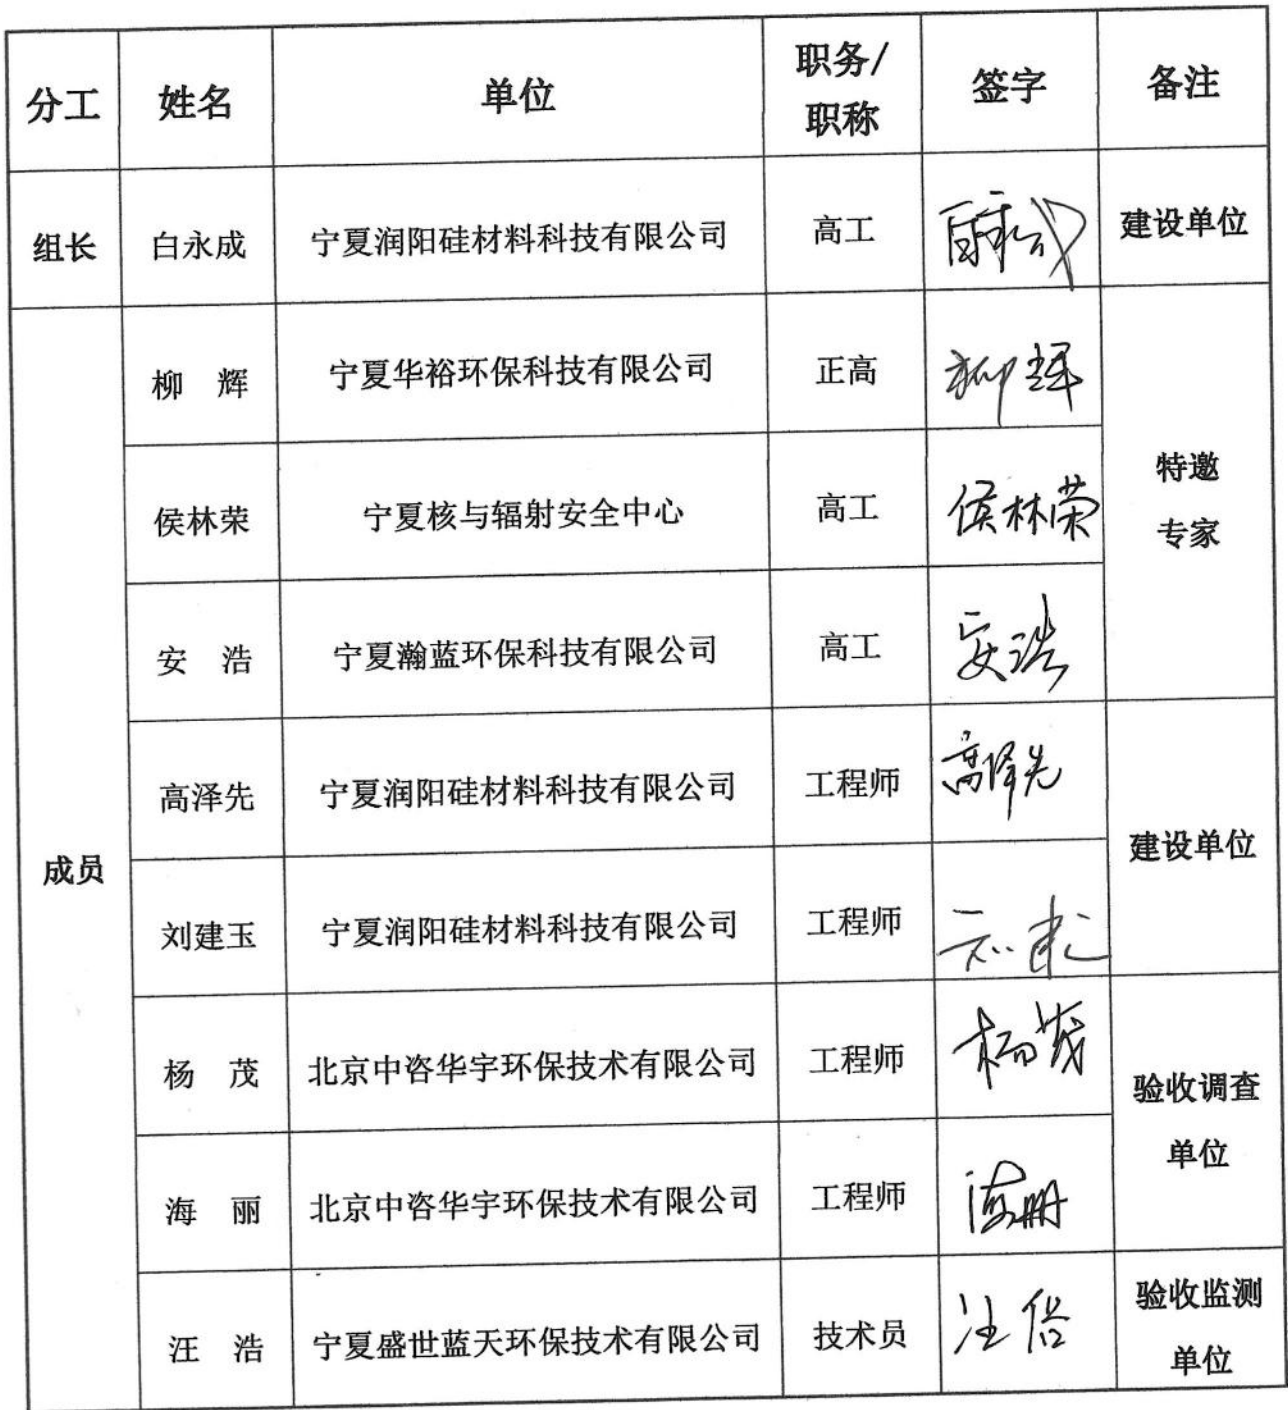 分工 姓名 单位 职务/职称 签字 备注
组长 白永成 宁夏润阳硅材料科技有限公司 高工 白永成 建设单位
成员
柳 辉 宁夏华裕环保科技有限公司 正高 柳辉
侯林荣 宁夏核与辐射安全中心 高工 侯林荣
特邀专家
安 浩 宁夏瀚蓝环保科技有限公司 高工 安浩
高泽先 宁夏润阳硅材料科技有限公司 工程师 高泽先
建设单位
刘建玉 宁夏润阳硅材料科技有限公司 工程师
杨 茂 北京中咨华宇环保技术有限公司 工程师 杨茂
验收调查单位
海 丽 北京中咨华宇环保技术有限公司 工程师 海丽
汪 浩 宁夏盛世蓝天环保技术有限公司 技术员 验收监测单位